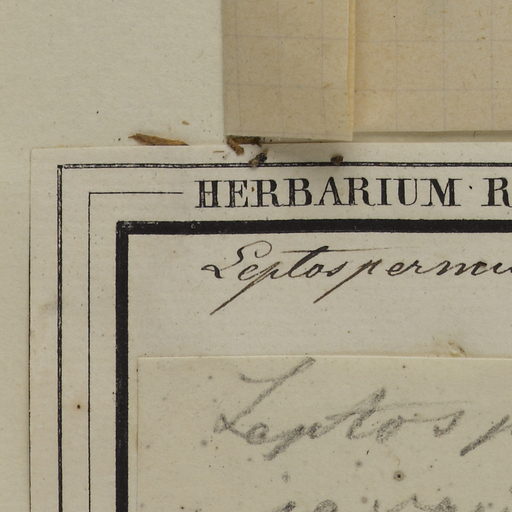 HERBARIUM R
Leptospermu
Leptosp